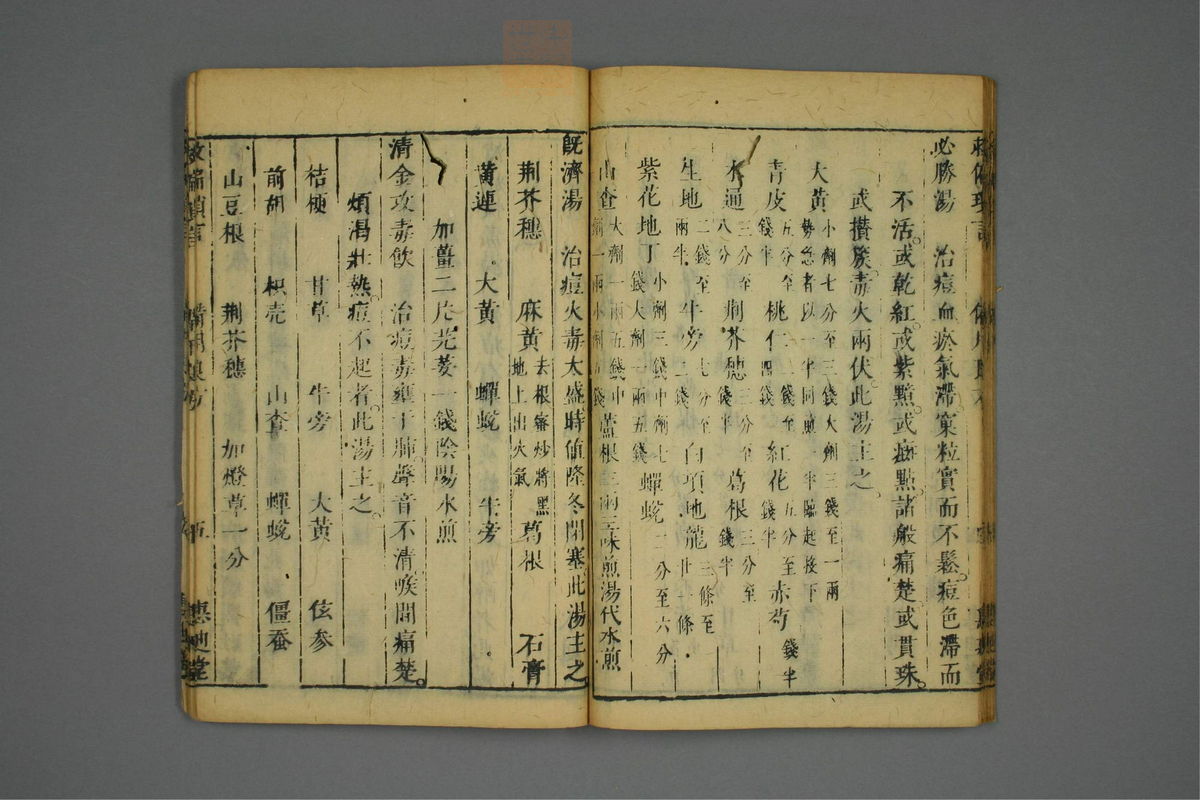 必勝湯　治痘血瘀氣滯窠粒實而不鬆痘色滯而
不活或乾紅或紫點或斑點諸般痛楚或貫珠
或攢簇毒火兩伏此湯主之
大黃 小劑七分至三錢大劑三錢至一兩 勢急者以一半同煎一半臨起後下
青皮 五分至錢半 桃仁 錢至四錢 紅花 五分至錢半 赤芍 錢半
木通 三分至八分 荊芥穗 三分至錢半 葛根 三分至錢半
生地 二錢至兩半 牛旁 七分至錢 白項地龍 三條至廿一條
紫花地丁 小劑三錢中劑七錢大劑一兩五錢 蟬蛻 二分至六分
山查 大劑一兩五錢中劑一兩小劑五錢 蘆根三兩三味煎湯代水煎
既濟湯　治痘火毒太盛時值隆冬閉塞此湯主之
荊芥穗　麻黃 去根蜜炒將黑地上出火氣 葛根　石膏
黃連　大黃　蟬蛻　牛旁
加薑二片芫荽一錢陰陽水煎
清金攻毒飲　治痘毒壅于肺聲音不清喉間痛楚
煩渴壯熱痘不起者此湯主之
桔梗　甘草　牛旁　大黃　佉参
前胡　枳壳　山查　蟬蛻　僵蚕
山豆根　荆芥穗　加燈草一分
救偏瑣言　備用良方　五　惠迪堂